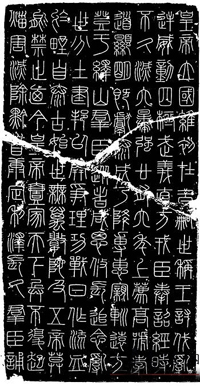 皇帝立國維初在昔嗣世稱王討伐亂
逆威動四極武義直方戎臣奉詔經時
不久滅六暴強廿有六年上薦高號孝
道顯明既獻泰成乃降尃惠寴巡遠方
登于繹山群臣從者咸思攸長追念亂
世分土建邦以開爭理功戰日作流血
於野自泰古始世無萬數陀及五帝莫
能禁止乃今皇帝壹家天下兵不復起
災害滅除黔首康定利澤長久群臣誦